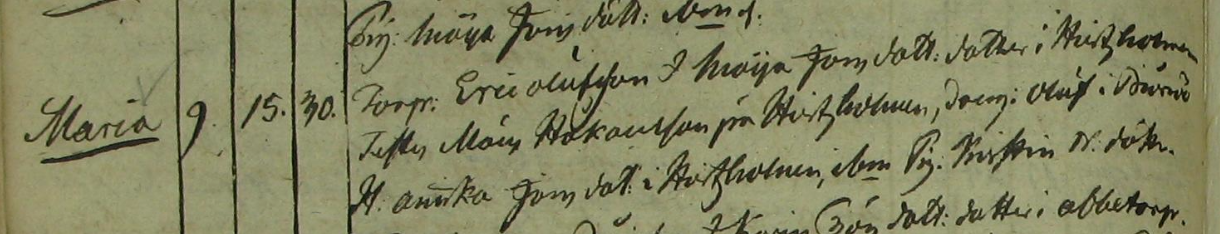 Pig: Maija Jons dått: ibm d.
Maria 9. 15. 30. Torpr: Eric olufsson & Maija Jons datt: datter i Hiortzholmen
Testes Måns Håkansson på Hiortzholmen, dreng: oluf i
H. aṅika Jons dat: i Hiortzholmen, ibm Pig. Kirstin dåtr.
Karin Jöns datt: datter i abbetorp.